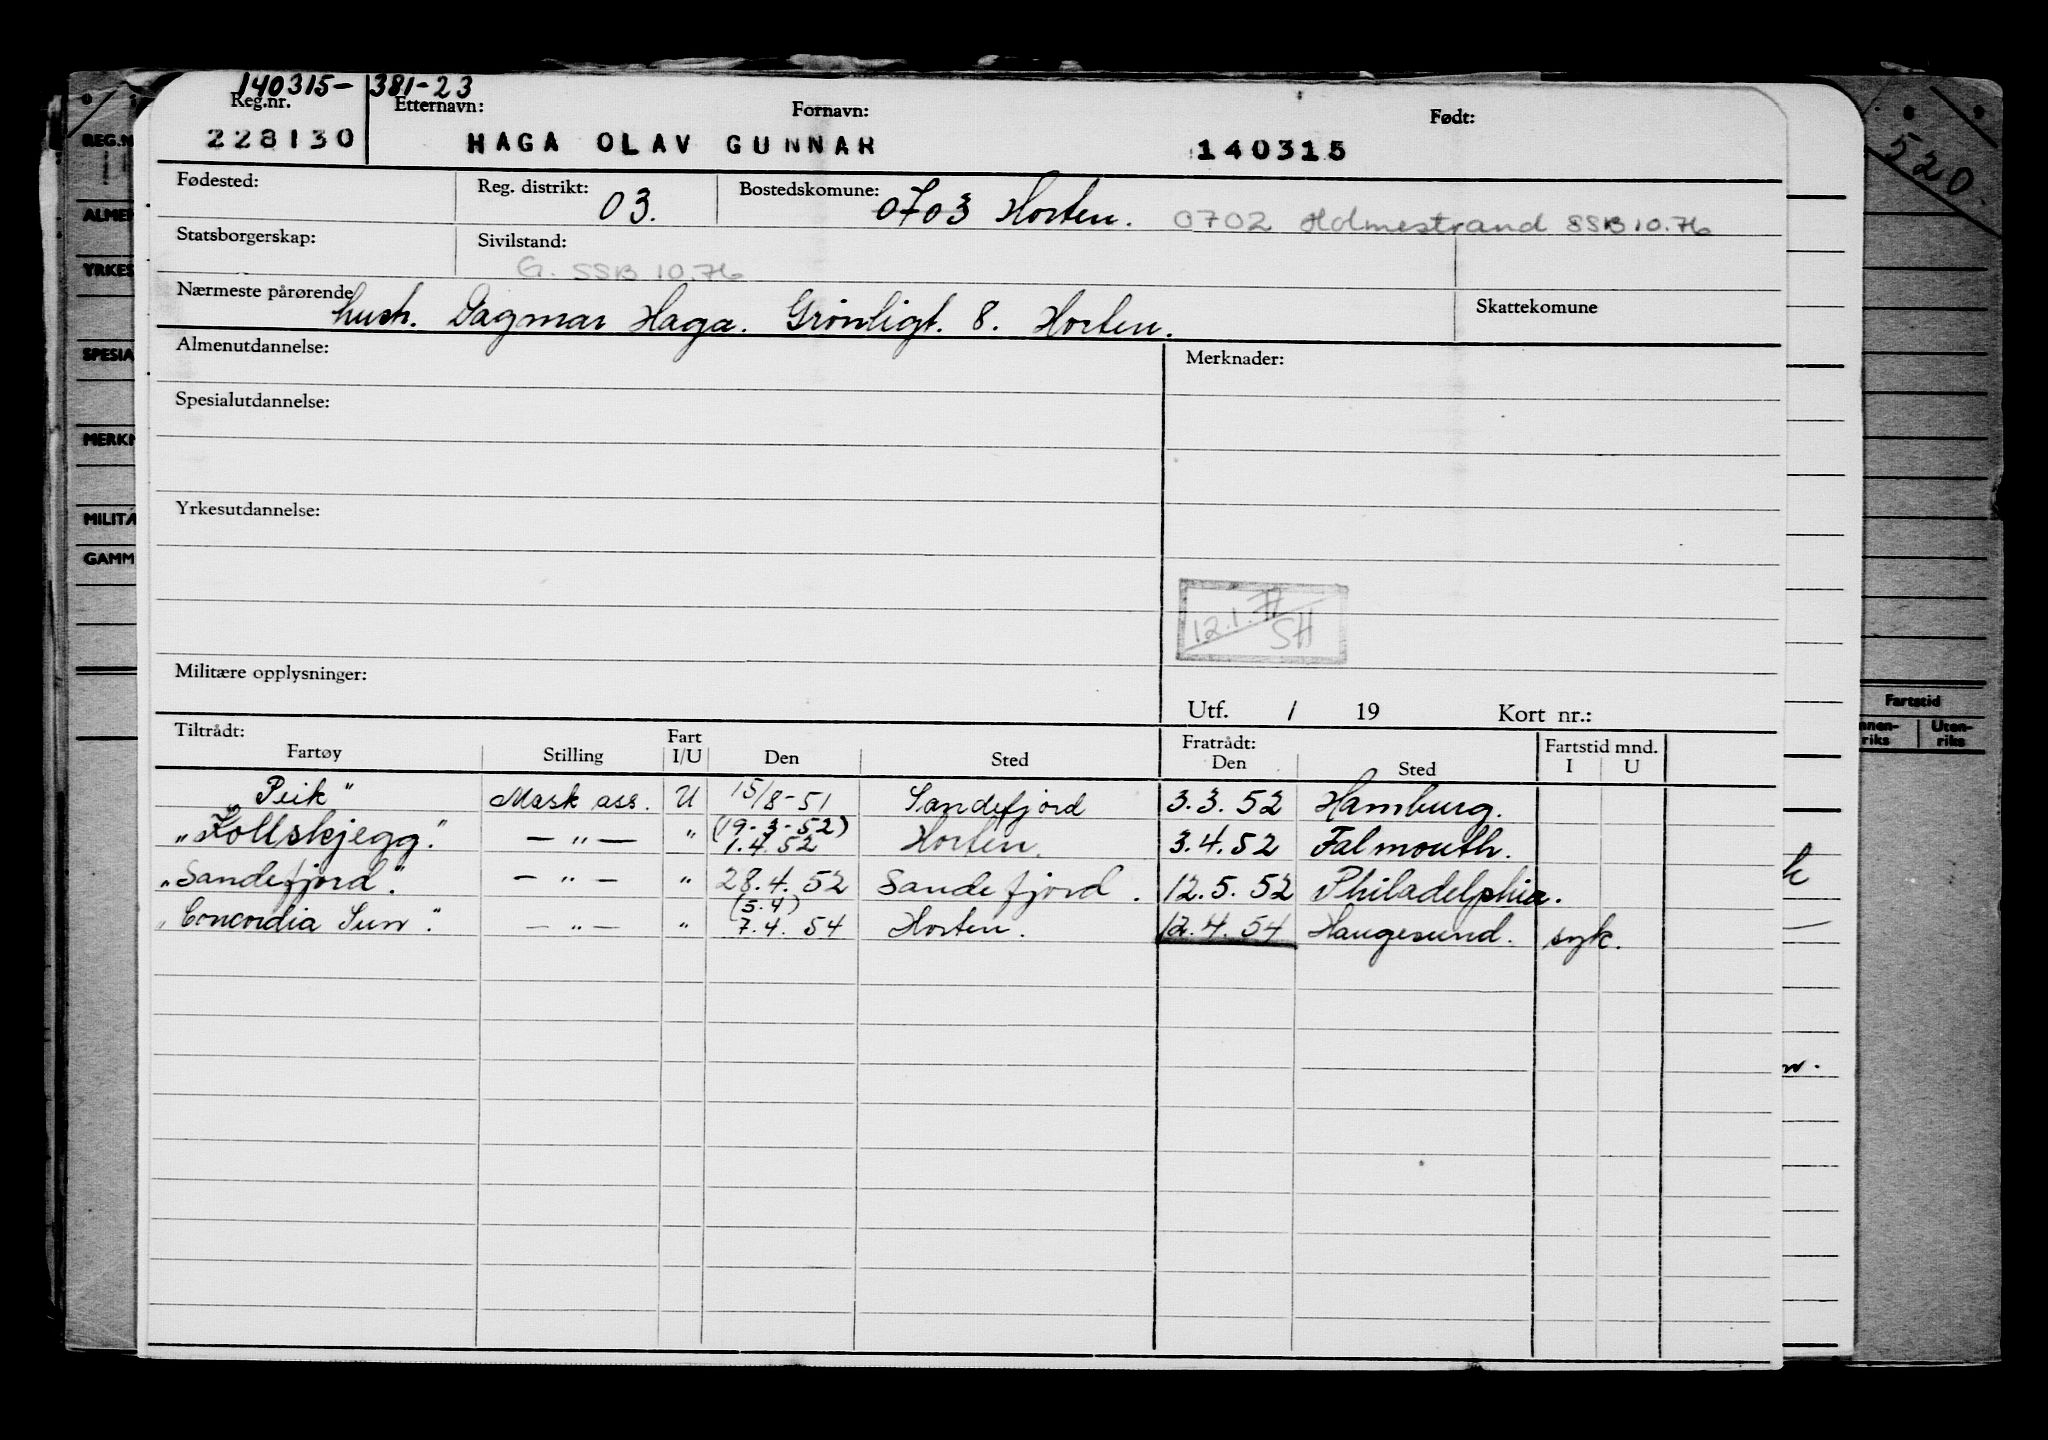 140315- 381-23
Reg.nr. Etternavn: Fornavn: Født:
228130 HAGA OLAV GUNNAR 140315
Fødested: Reg. distrikt: 03. Bostedskomune: 0703 Horten. 0702 Holmestrand SSB 10.76
Statsborgerskap: Sivilstand: G. SSB 10.76
Nærmeste pårørende hustr. Dagmar Haga. Grønligt. 8. Horten. Skattekomune
Almenutdannelse: Merknader:
Spesialutdannelse:
Yrkesutdannelse:
12.1.71 SH
Militære opplysninger:
Utf. / 19 Kort nr.:
Tiltrådt: Fratrådt: Fartstid mnd.
Fartøy Stilling Fart I/U Den Sted Den Sted I U
Peik" Mask ass. U 15/8-51 Sandefjord 3.3.52 Hamburg.
"Kollskjegg." — " — " (19-3-52) 1.4.52 Horten. 3.4.52 Falmouth.
"Sandefjord". — " — " 28.4.52 Sandefjord. 12.5.52 Philadelphia.
"Concordia Sun". — " — " (5.4) 7.4.54 Horten. 12.4.54 Haugesund. syk.
REG.N
ALMEN
YRKES
SPESIA
MERKN
MILITÆ
GAMM
520
Fartstid
nnen-riks Uten-riks